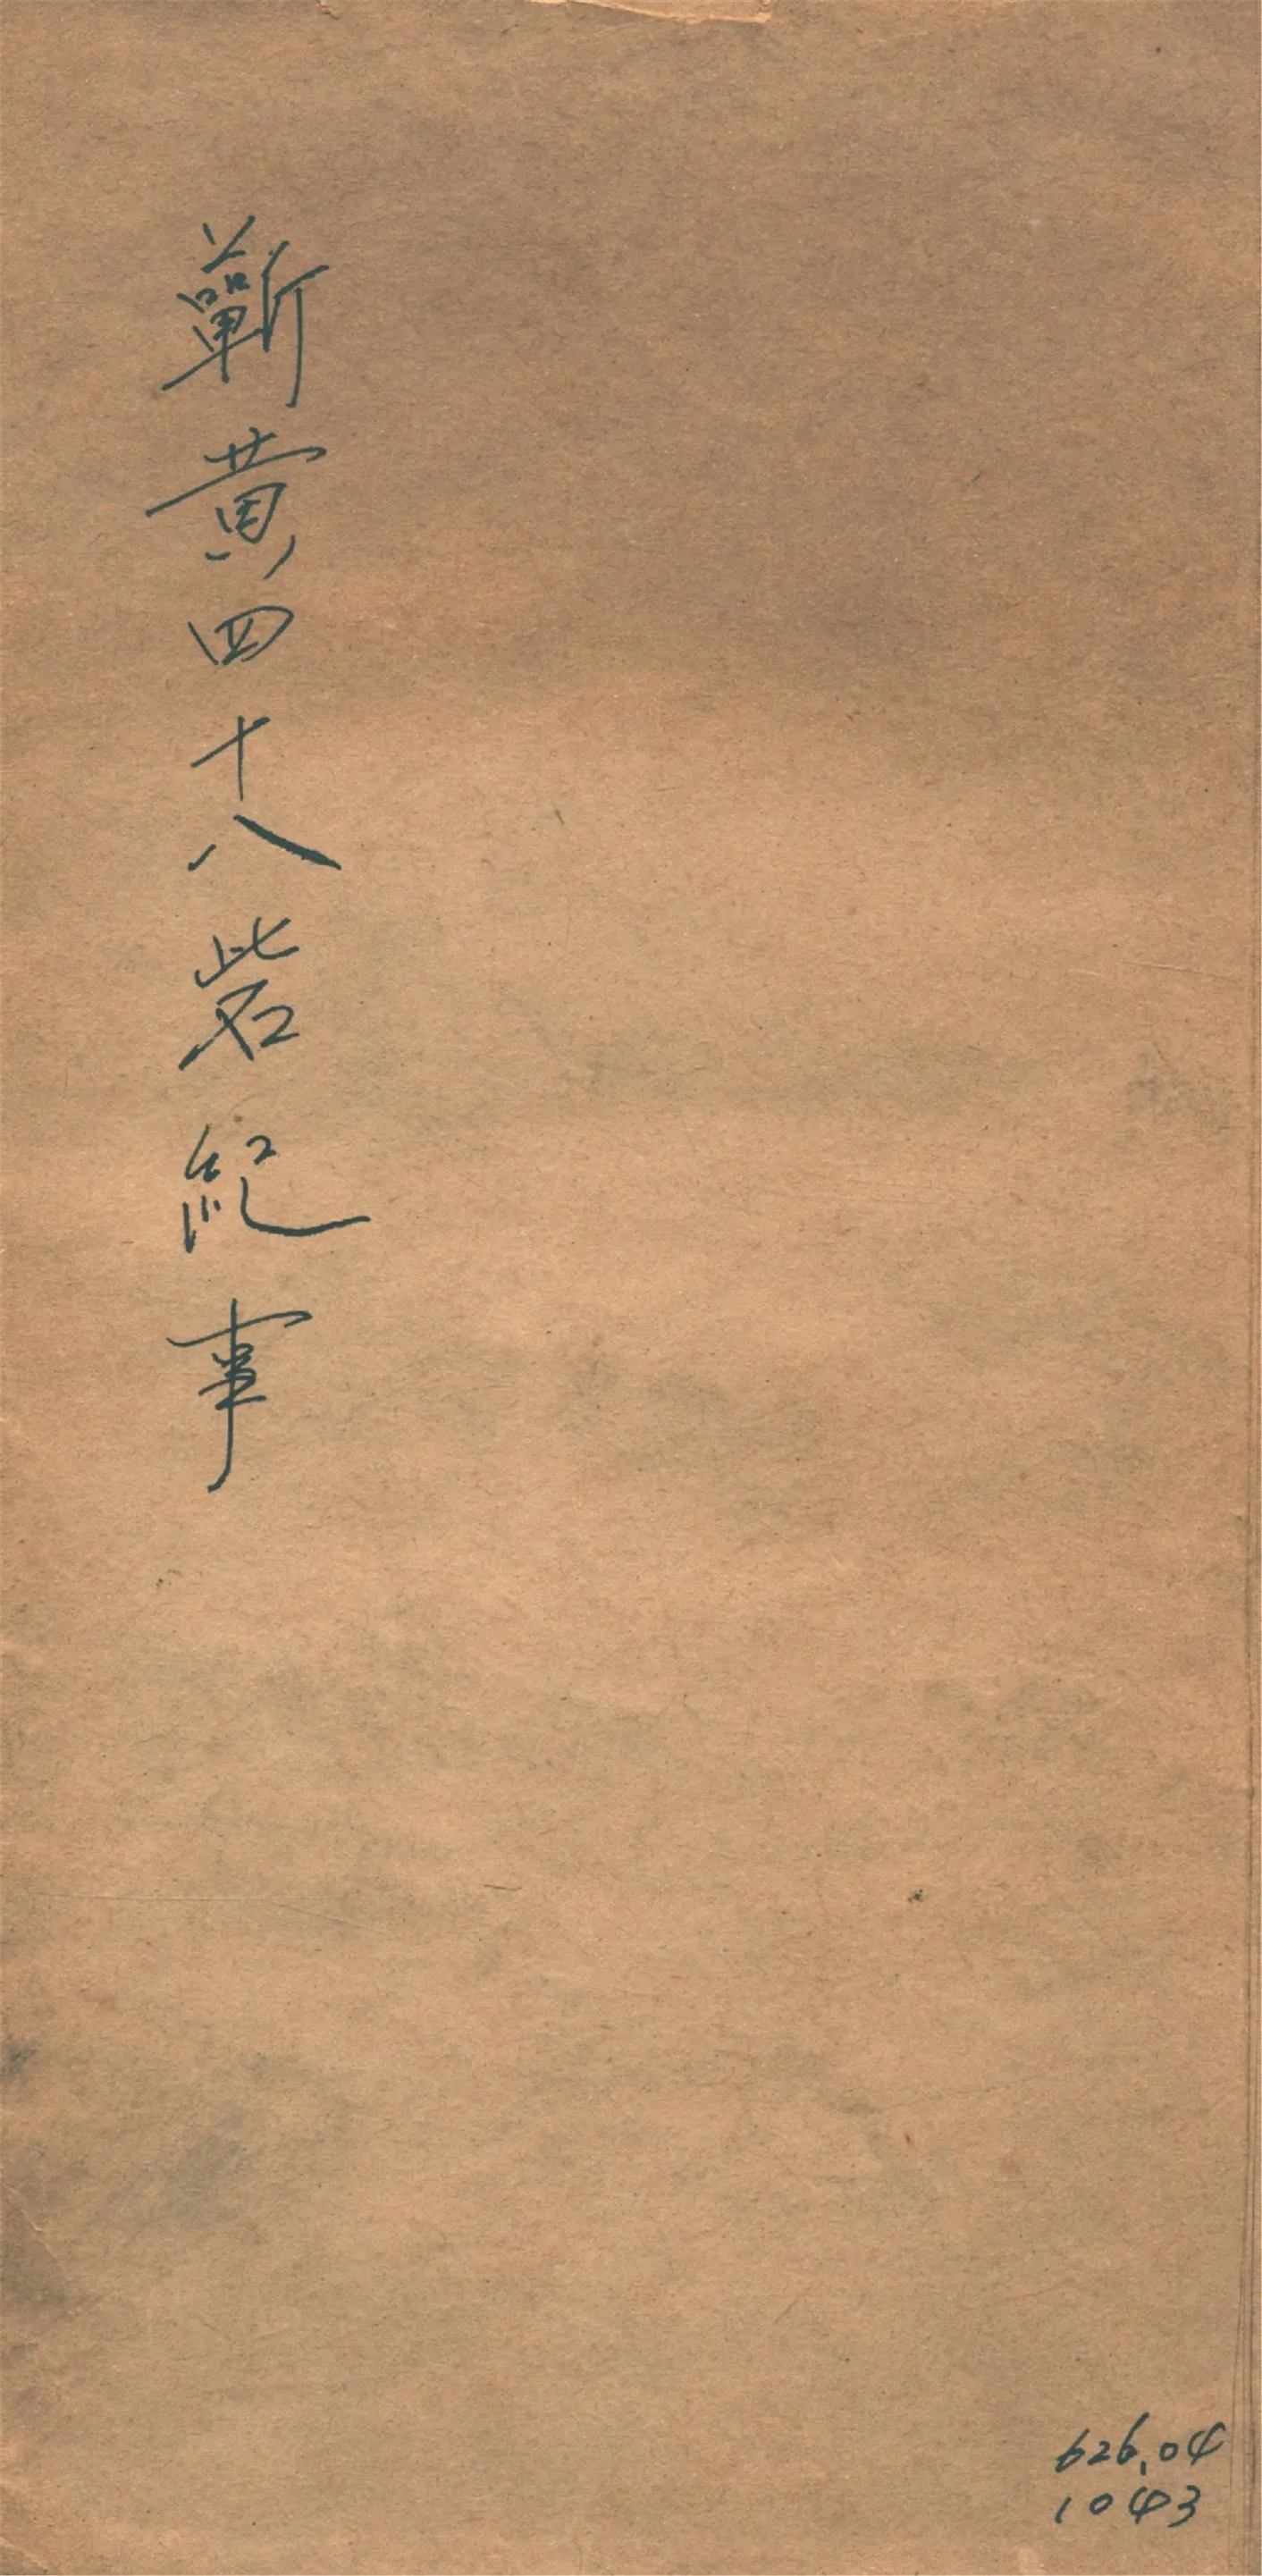 蘄黄四十八砦紀事
626.04
1043